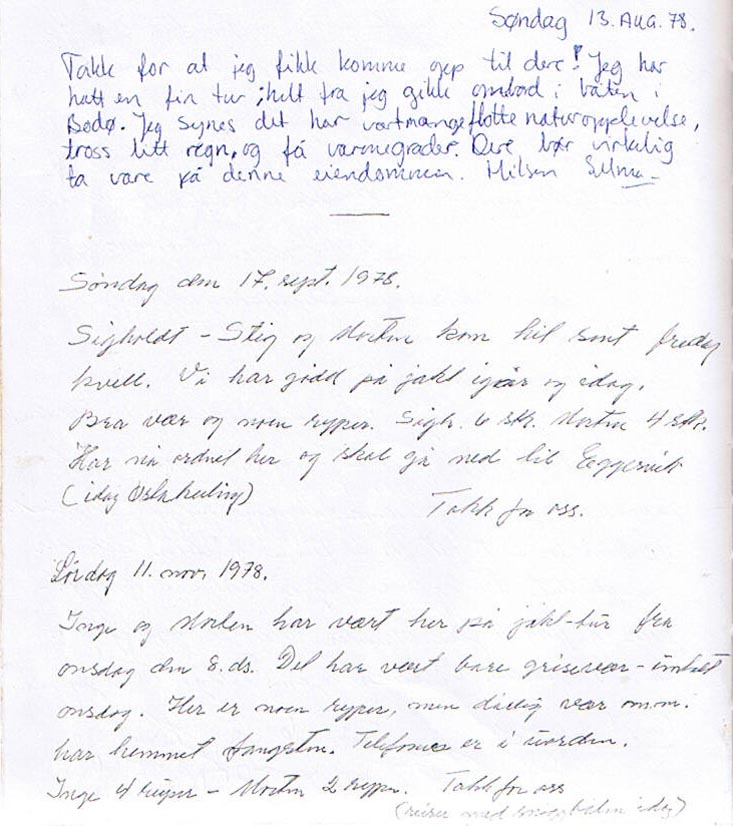 Søndag 13. AUG. 78.
Takk for at jeg fikk komme opp til dere! Jeg har
hatt en fin tur; helt fra jeg gikk ombord i båten i
Bodø. Jeg synes det har vært mange flotte naturopplevelse,
tross litt regn, og få varmegrader. Dere bør virkelig
ta vare på denne eiendommen. Hilsen Selma
Søndag den 17. sept. 1978.
Sigholdt - Stig og Morten kom hit sent fredag
kveld. Vi har gådd på jakt igår og idag.
Bra vær og noen ryper. Sigh. 6 stk. Morten 4 stk.
Har nå ordnet her og skal gå ned til Eggesvik
(idag Østa kuling)
Takk for oss.
Lørdag 11. nov. 1978.
Inge og Morten har vært her på jakt-tur fra
onsdag den 8. ds. Det har vært bare grisevær - untatt
onsdag. Her er noen ryper, men dårlig vær m.m.
har hemmet fangsten. Telefonen er i uorden.
Inge 4 ryper - Morten 2 ryper. Takk for oss
(reiser med idag)